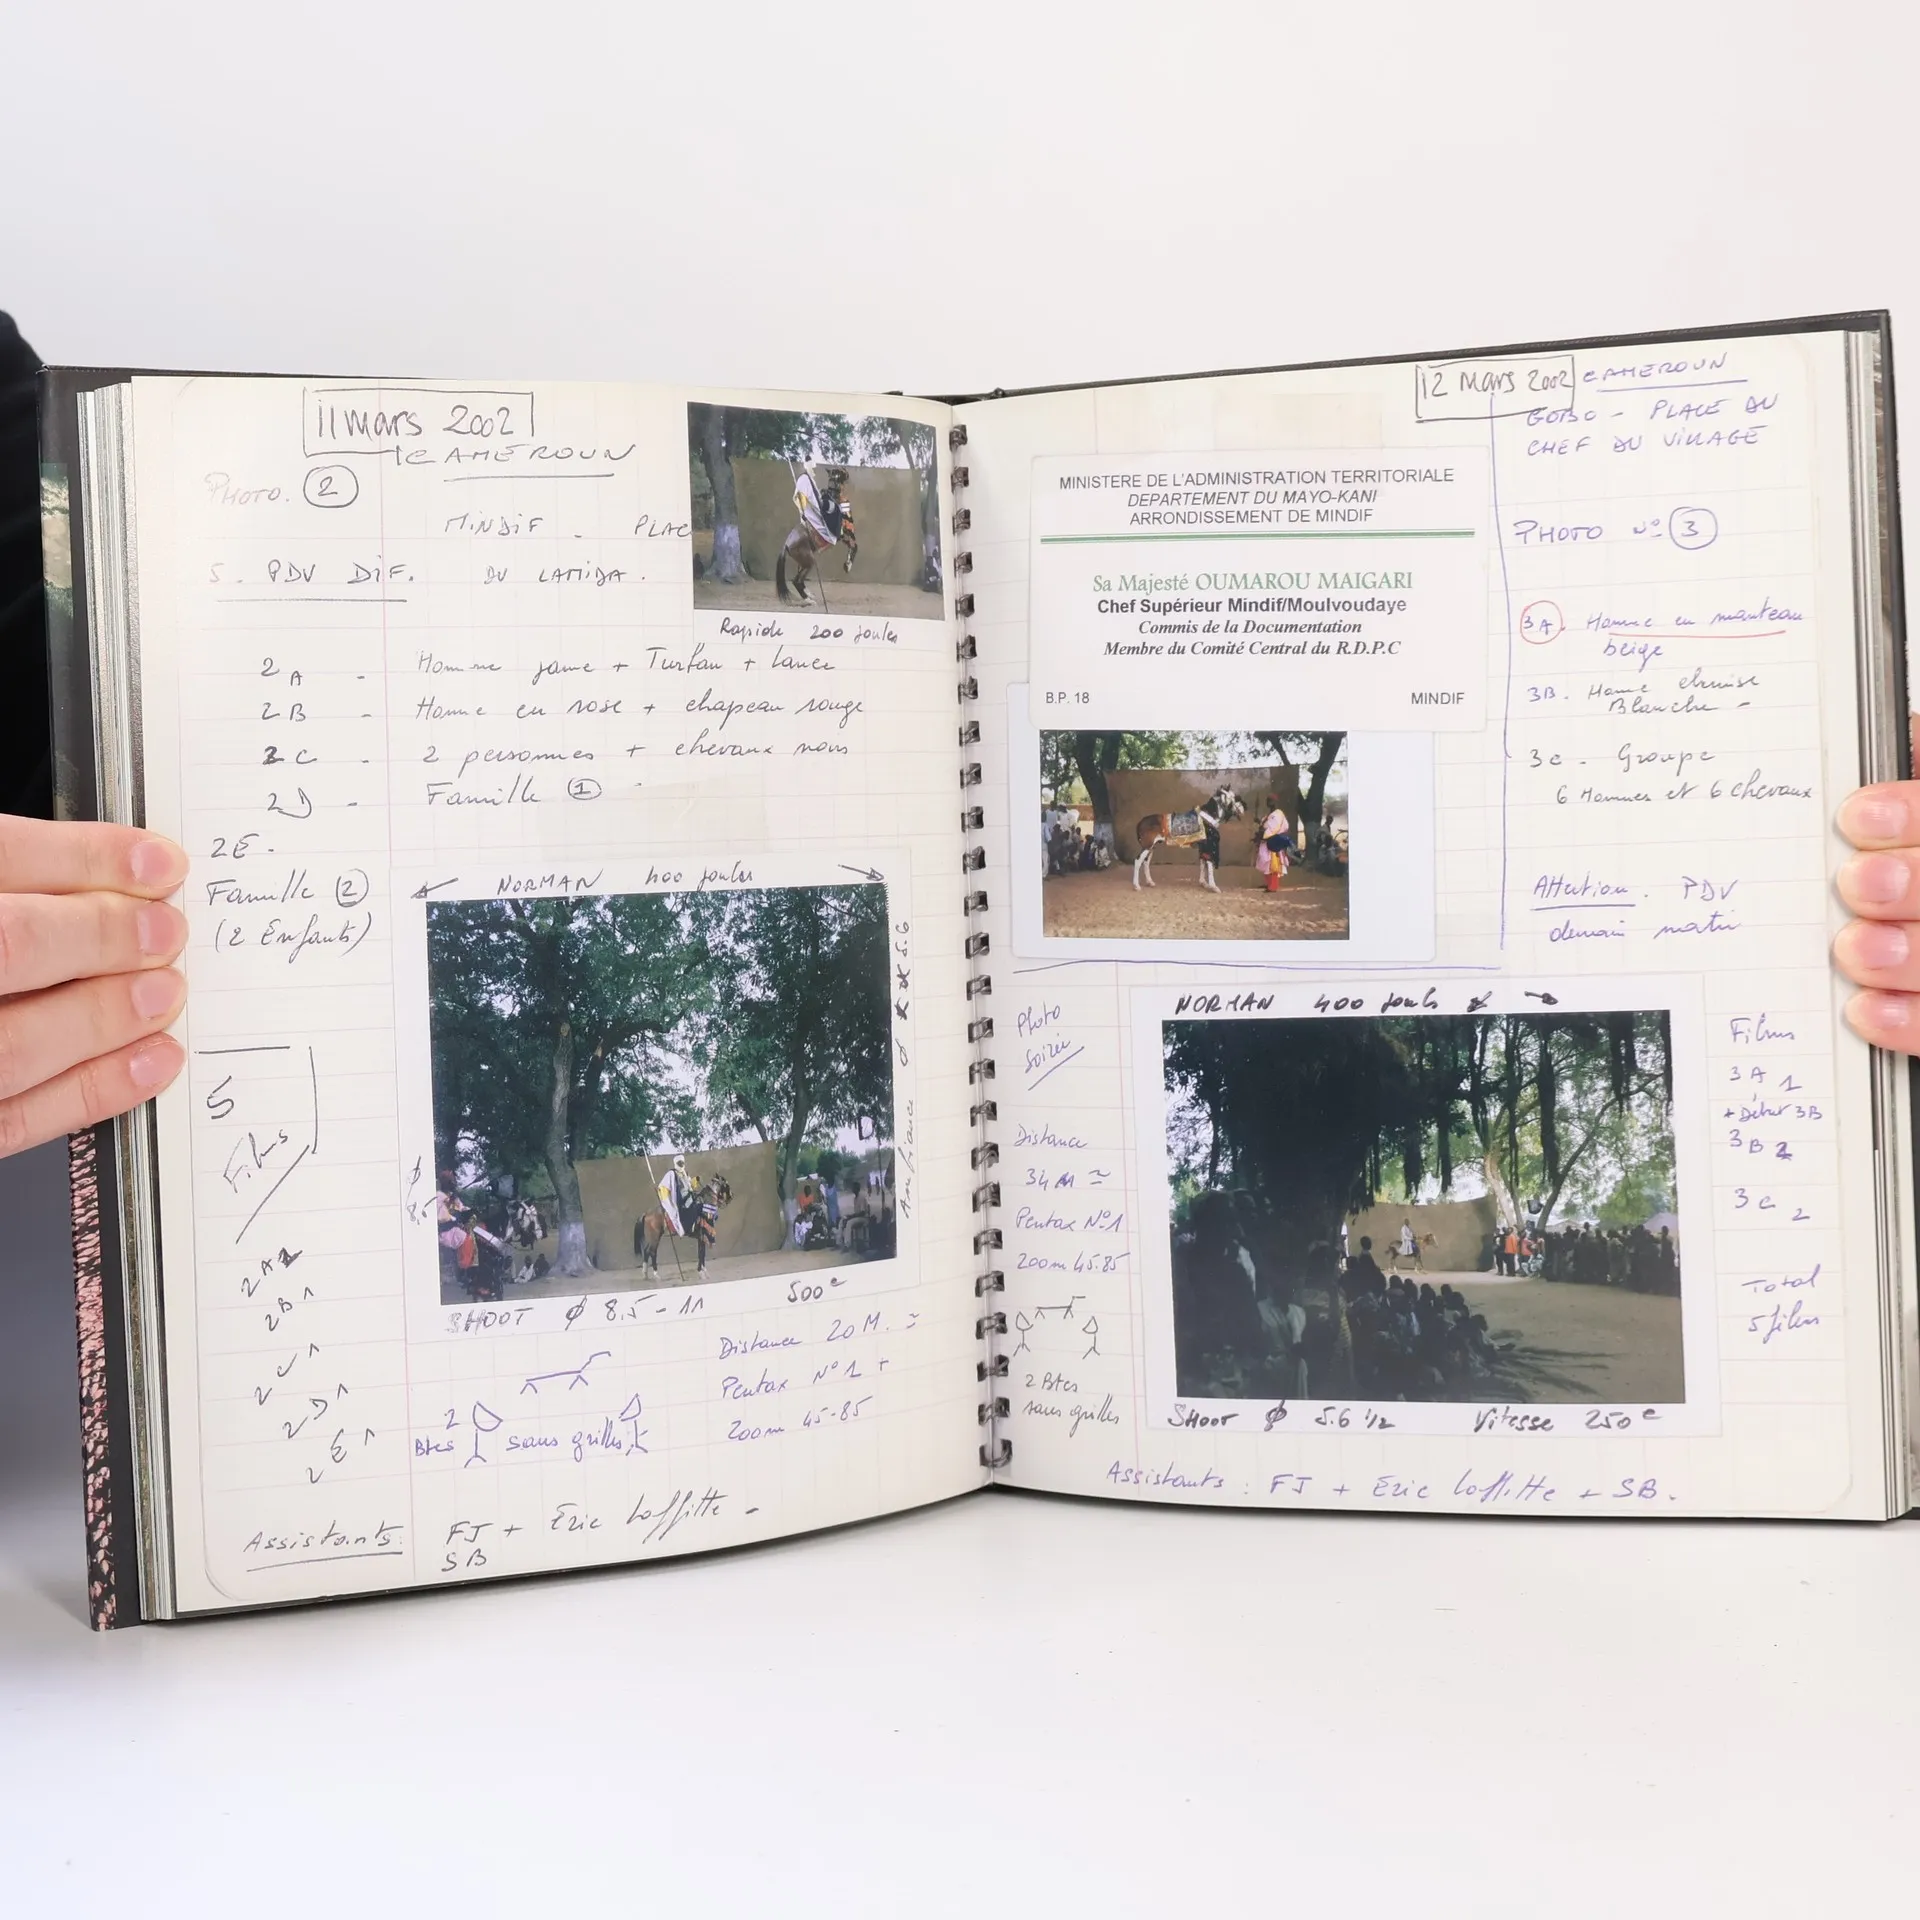 11 mars 2002
CAMEROUN
PHOTO. 2
MINDIF - PLAC
5. PDV DIF. DU LAMIDA.
Rapide 200 joules
2A - Homme jaune + Turban + Lance
2B - Homme en rose + chapeau rouge
2C - 2 personnes + chevaux noirs
2D - Famille 1
2E -
Famille 2
(2 Enfants)
NORMAN 400 joules
Ambiance 5.6
8.5
SHOOT ϕ 8.5 - 11 500e
5
Films
2A 1
2B 1
2C 1
2D 1
2E 1
2 Btes sans grilles
Distance 20 M. ≃
Pentax N°1 +
Zoom 45-85
Assistants: FJ + Eric Laffitte -
SB
12 Mars 2002 CAMEROUN
GOBO - PLACE DU
CHEF DU VILLAGE
MINISTERE DE L'ADMINISTRATION TERRITORIALE
DEPARTEMENT DU MAYO-KANI
ARRONDISSEMENT DE MINDIF
Sa Majesté OUMAROU MAIGARI
Chef Supérieur Mindif/Moulvoudaye
Commis de la Documentation
Membre du Comité Central du R.D.P.C
B.P. 18 MINDIF
PHOTO N° 3
3A. Homme en manteau
beige
3B. Homme chemise
Blanche -
3C - Groupe
6 Hommes et 6 chevaux
Attention. PDV
demain matin
Photo
Soirée
Distance
34 M ≃
Pentax N°1
Zoom 45.85
2 Btes
sans grilles
NORMAN 400 Jouls
SHOOT ϕ 5.6 1/2 Vitesse 250e
Films
3A 1
+ Début 3B
3B 2
3C 2
Total
5 films
Assistants : FJ + Eric Laffitte + SB.